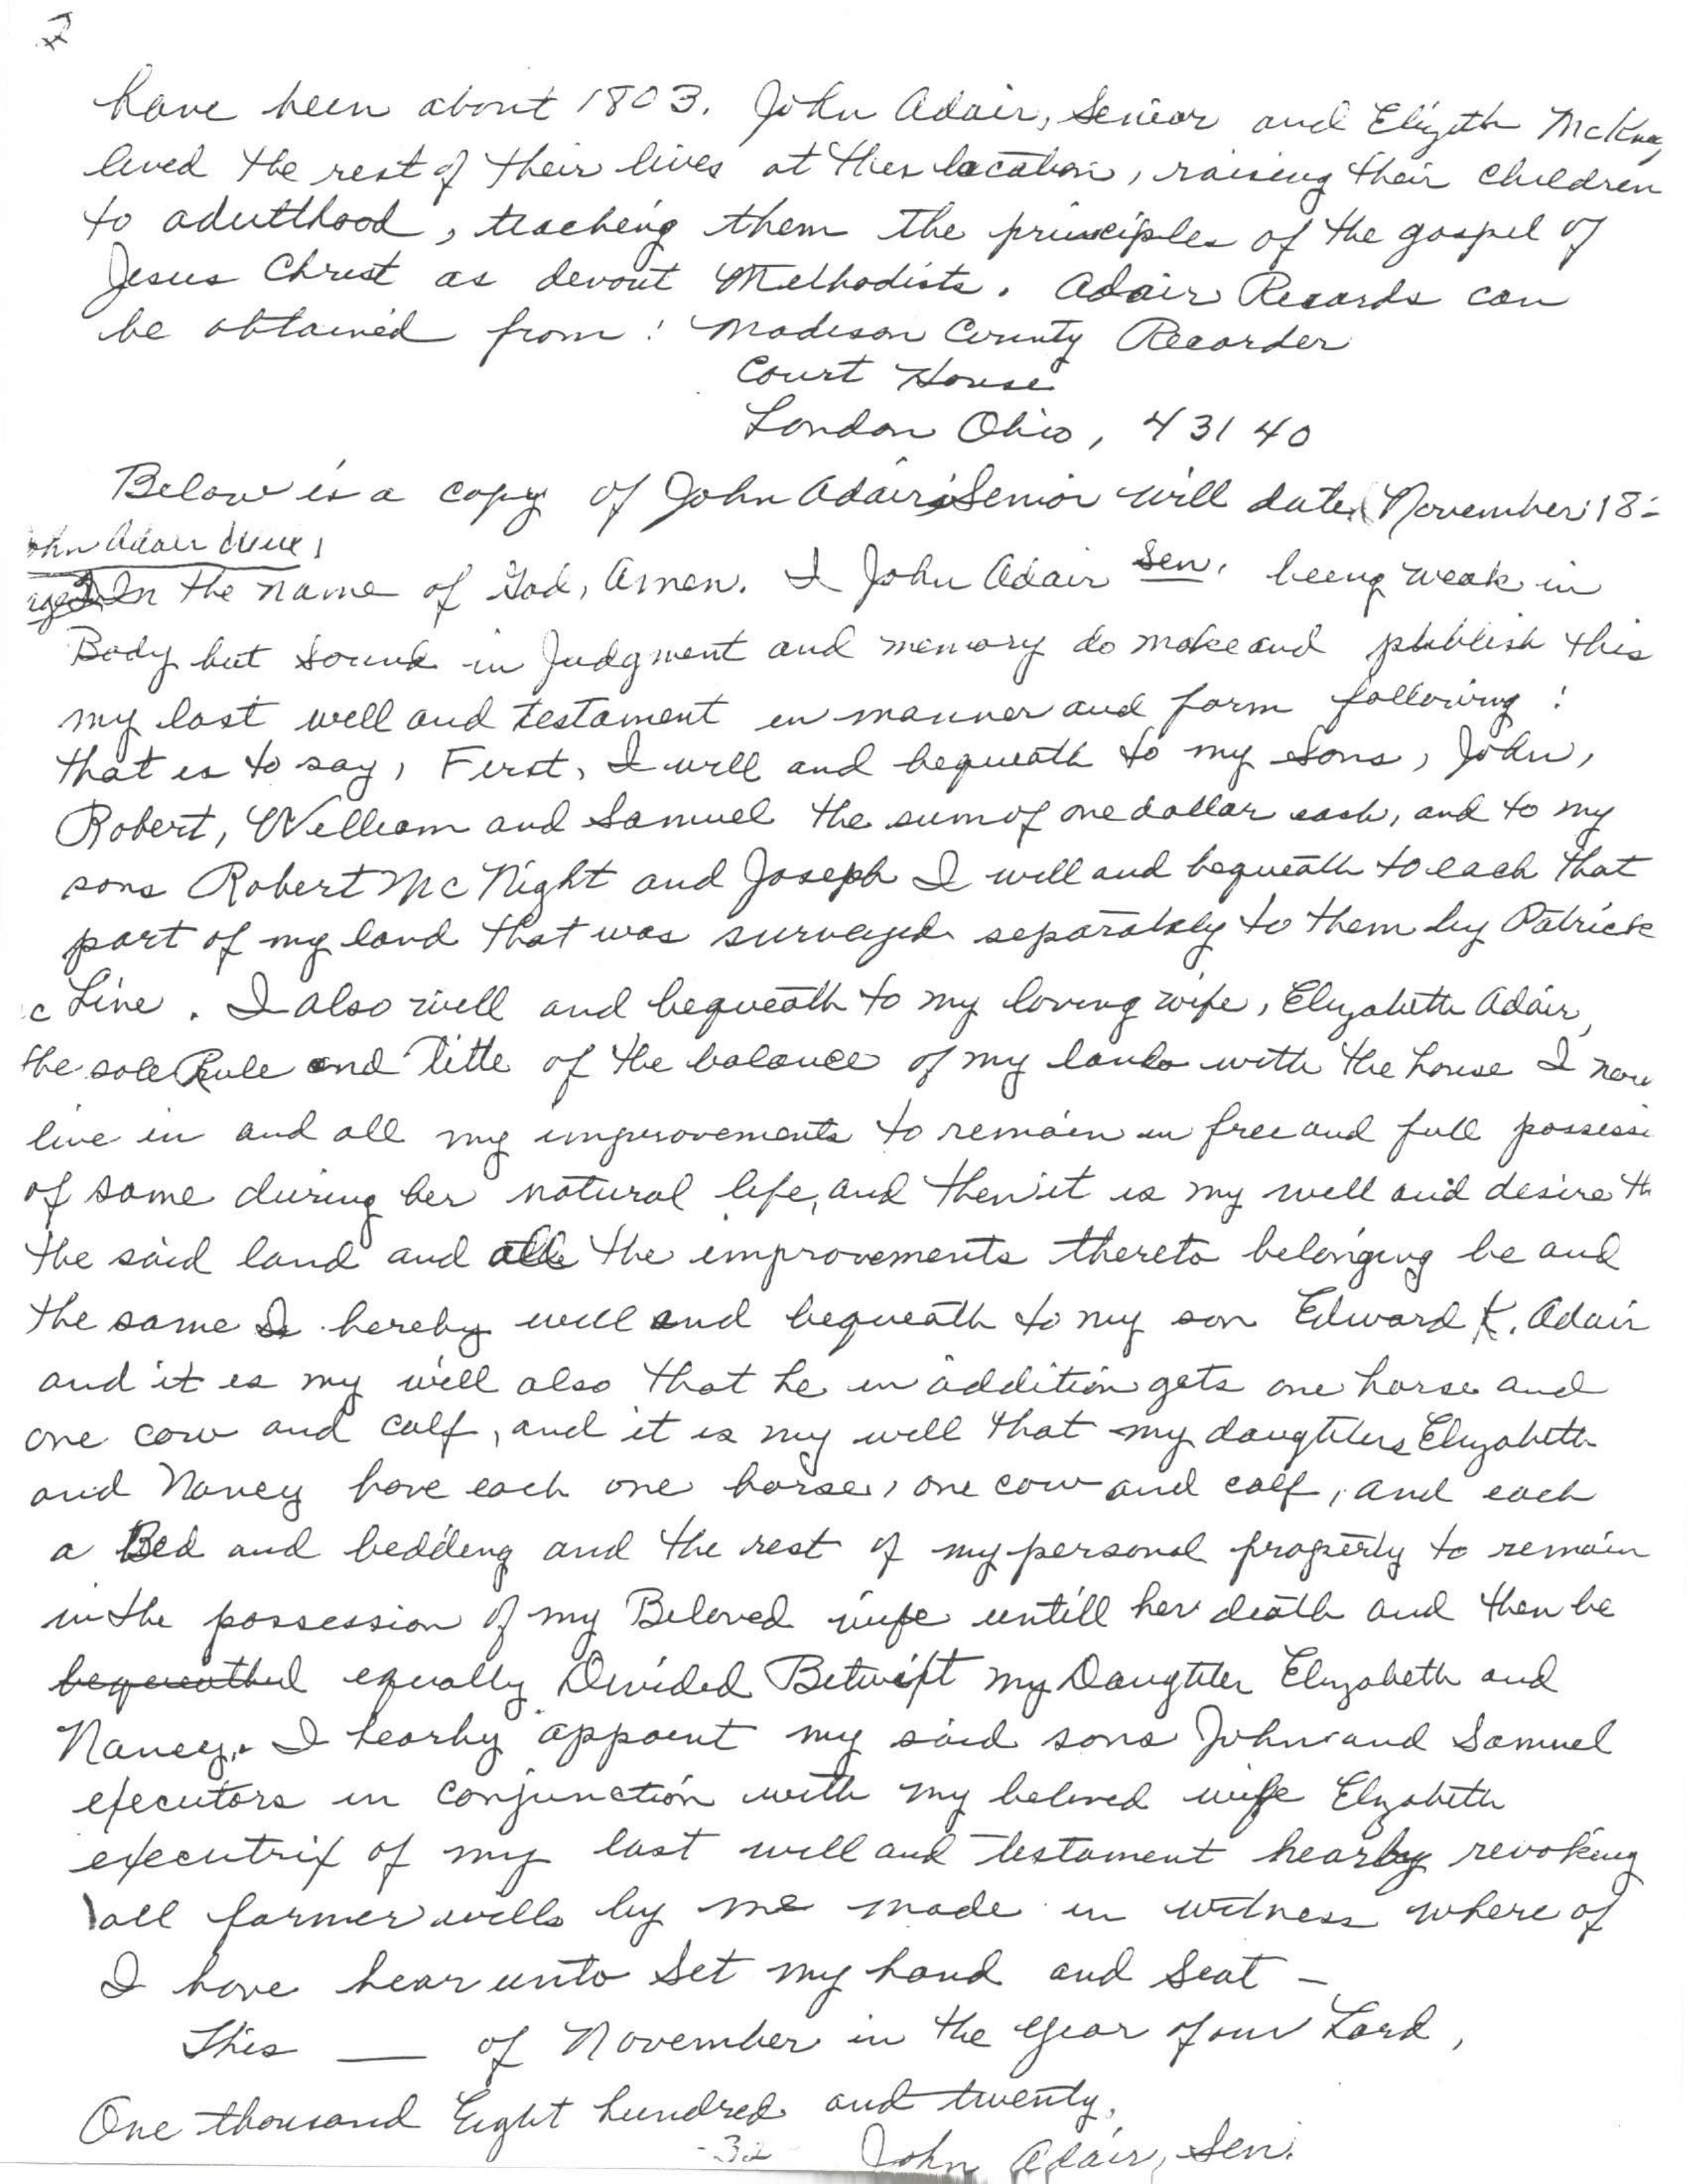 have been about 1803. John Adair, Senior and Elizeth McKna
lived the rest of their lives at this location, raising their children
to adulthood, teaching them the principles of the gospel of
Jesus Christ as devout Methodists. Adair Records can
be obtained from: Madison County Recorder
Court House
London Ohio, 43140
Below is a copy of John Adair's Senior will dated November 18
John Adair
In the name of God, Amen. I John Adair Sen. being weak in
Body but sound in Judgment and memory do make and publish this
my last will and testament in manner and form following:
that is to say, First, I will and bequeath to my sons, John,
Robert, William and Samuel the sum of one dollar each, and to my
sons Robert McNight and Joseph I will and bequeath to each that
part of my land that was surveyed separately to them by Patrick
c Line. I also will and bequeath to my loving wife, Elizabeth Adair,
the sole Rule and Title of the balance of my lands with the house I now
live in and all my improvements to remain in free and full possessi
of same during her natural life, and then it is my will and desire th
the said land and all the improvements thereto belonging be and
the same I hereby will and bequeath to my son Edward K. Adair
and it is my will also that he in addition gets one horse and
one cow and calf, and it is my will that my daughters Elizabeth
and Nancy have each one horse, one cow and calf, and each
a Bed and bedding and the rest of my personal property to remain
in the possession of my Beloved wife untill her death and then be
bequeathed equally Divided Betwixt my Daughter Elizabeth and
Nancy. I hearby appoint my said sons John and Samuel
executors in conjunction with my beloved wife Elizabeth
executrix of my last will and testament hearby revoking
all former wills by me made in witness where of
I have hear unto set my hand and seat -
This __ of November in the year of our Lord,
One thousand Eight hundred and twenty.
John Adair, Sen.